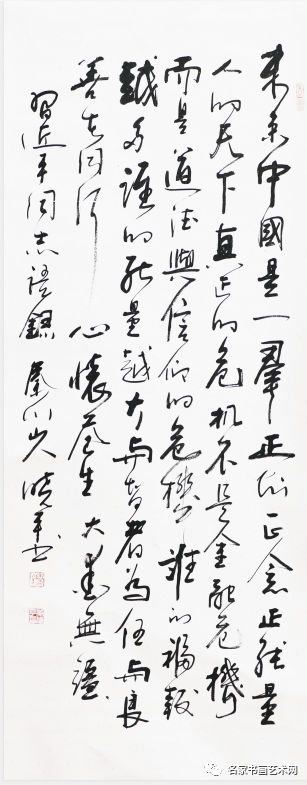 未来中國是一羣正知正念正能量
人的天下真正的危机不是金融危機
而是道德與信仰的危機誰的福報
越多誰的能量越大与智者為伍与良
善者同行 心懷蒼生大愛無疆
習近平同志語錄 秦川 曉平书
名家书画艺术网